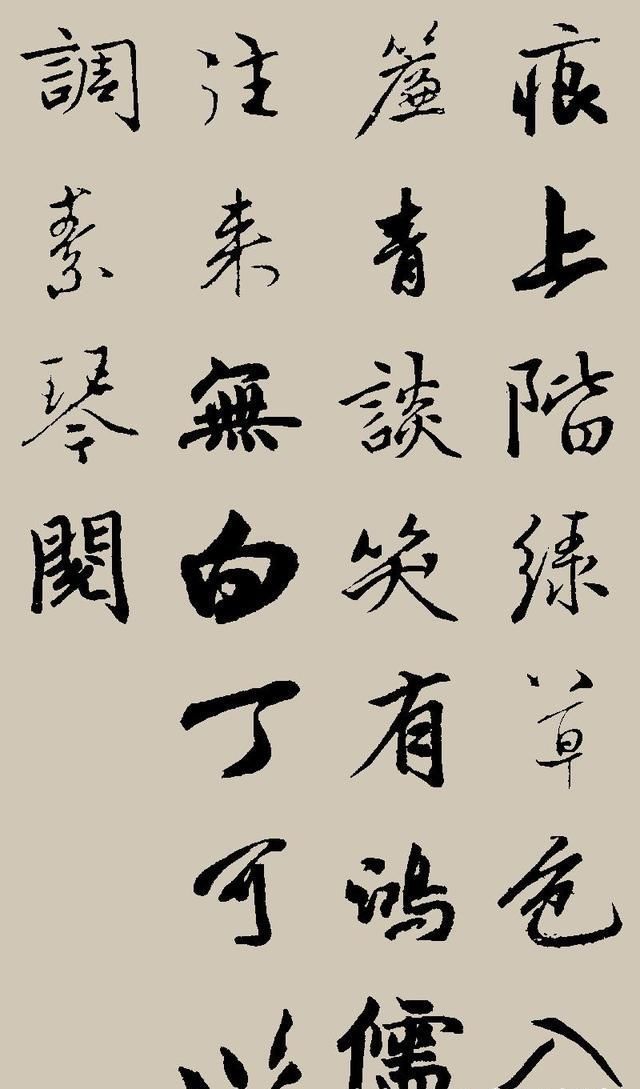 痕上階緑草色入
簾青談笑有鴻儒
往来無白丁可以
調素琴閱